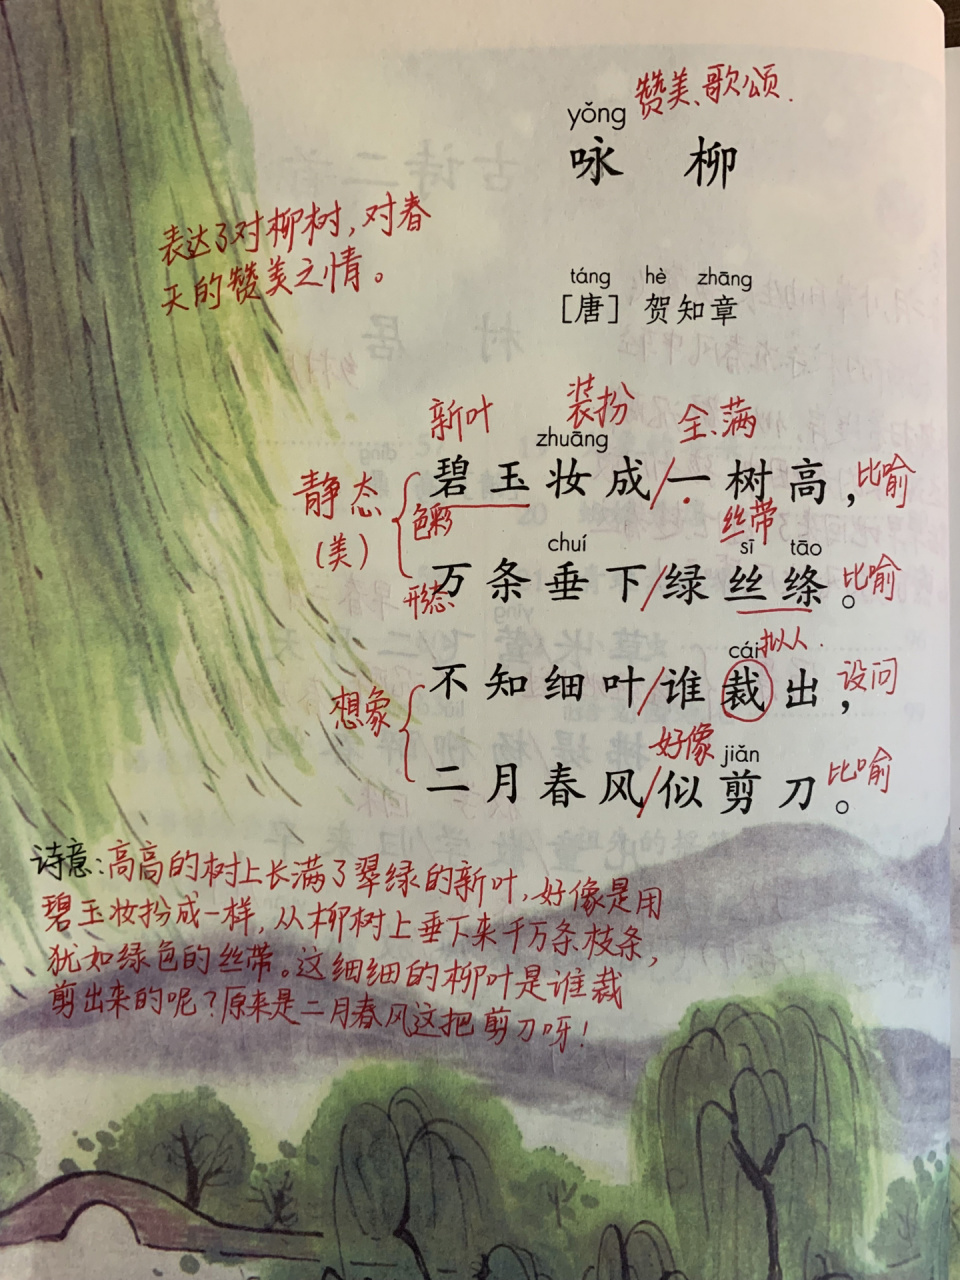 赞美、歌颂.
yǒng
咏 柳
表达了对柳树，对春
天的赞美之情。
táng hè zhāng
［唐］ 贺知章
新叶 装扮 全、满
zhuāng
静态
（美）
碧玉妆成/一树高，比喻
色彩 丝带
chuí sī tāo
形态
万条垂下/绿丝绦。比喻
cái 拟人.
想象
不知细叶/谁裁出，设问
好像 jiǎn
二月春风/似剪刀。比喻
诗意：高高的树上长满了翠绿的新叶，好像是用
碧玉妆扮成一样，从柳树上垂下来千万条枝条，
犹如绿色的丝带。这细细的柳叶是谁裁
剪出来的呢？原来是二月春风这把剪刀呀！